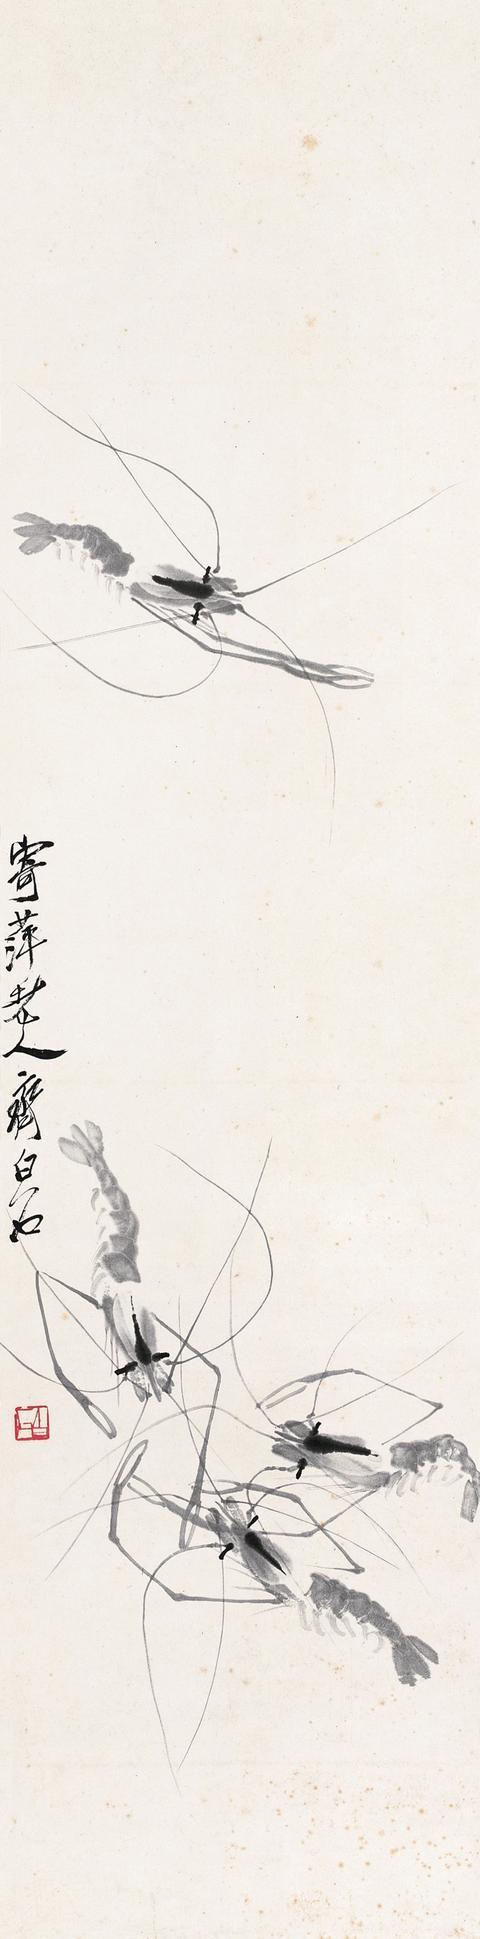 寄萍老人齊白石